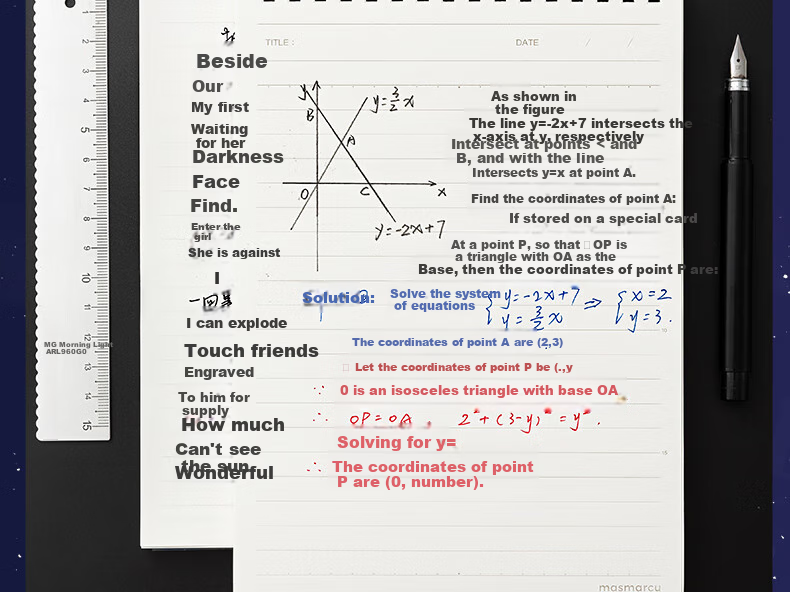 TITLE :
DATE / /
Beside
Our
My first
Waiting
for her
Darkness
Face
Find.
Enter the
girl
She is against
I
I can explode
Touch friends
Engraved
To him for
supply
How much
Can't see
the sun
Wonderful
MG Morning Light
ARL960G0
y
B
y=3/2 x
A
O
C
x
y=-2x+7
As shown in
the figure
The line y=-2x+7 intersects the
x-axis at y, respectively
Intersect at points < and
B, and with the line
Intersects y=x at point A.
Find the coordinates of point A:
If stored on a special card
At a point P, so that □ OP is
a triangle with OA as the
Base, then the coordinates of point P are:
Solution:
Solve the system
of equations
{ y=-2x+7
y=3/2 x
⇒ { x=2
y=3.
The coordinates of point A are (2,3)
□ Let the coordinates of point P be (.,y
∵ 0 is an isosceles triangle with base OA
∴ OP=OA. 2²+(3-y)²=y².
Solving for y=
∴ The coordinates of point
P are (0, number).
masmarcu